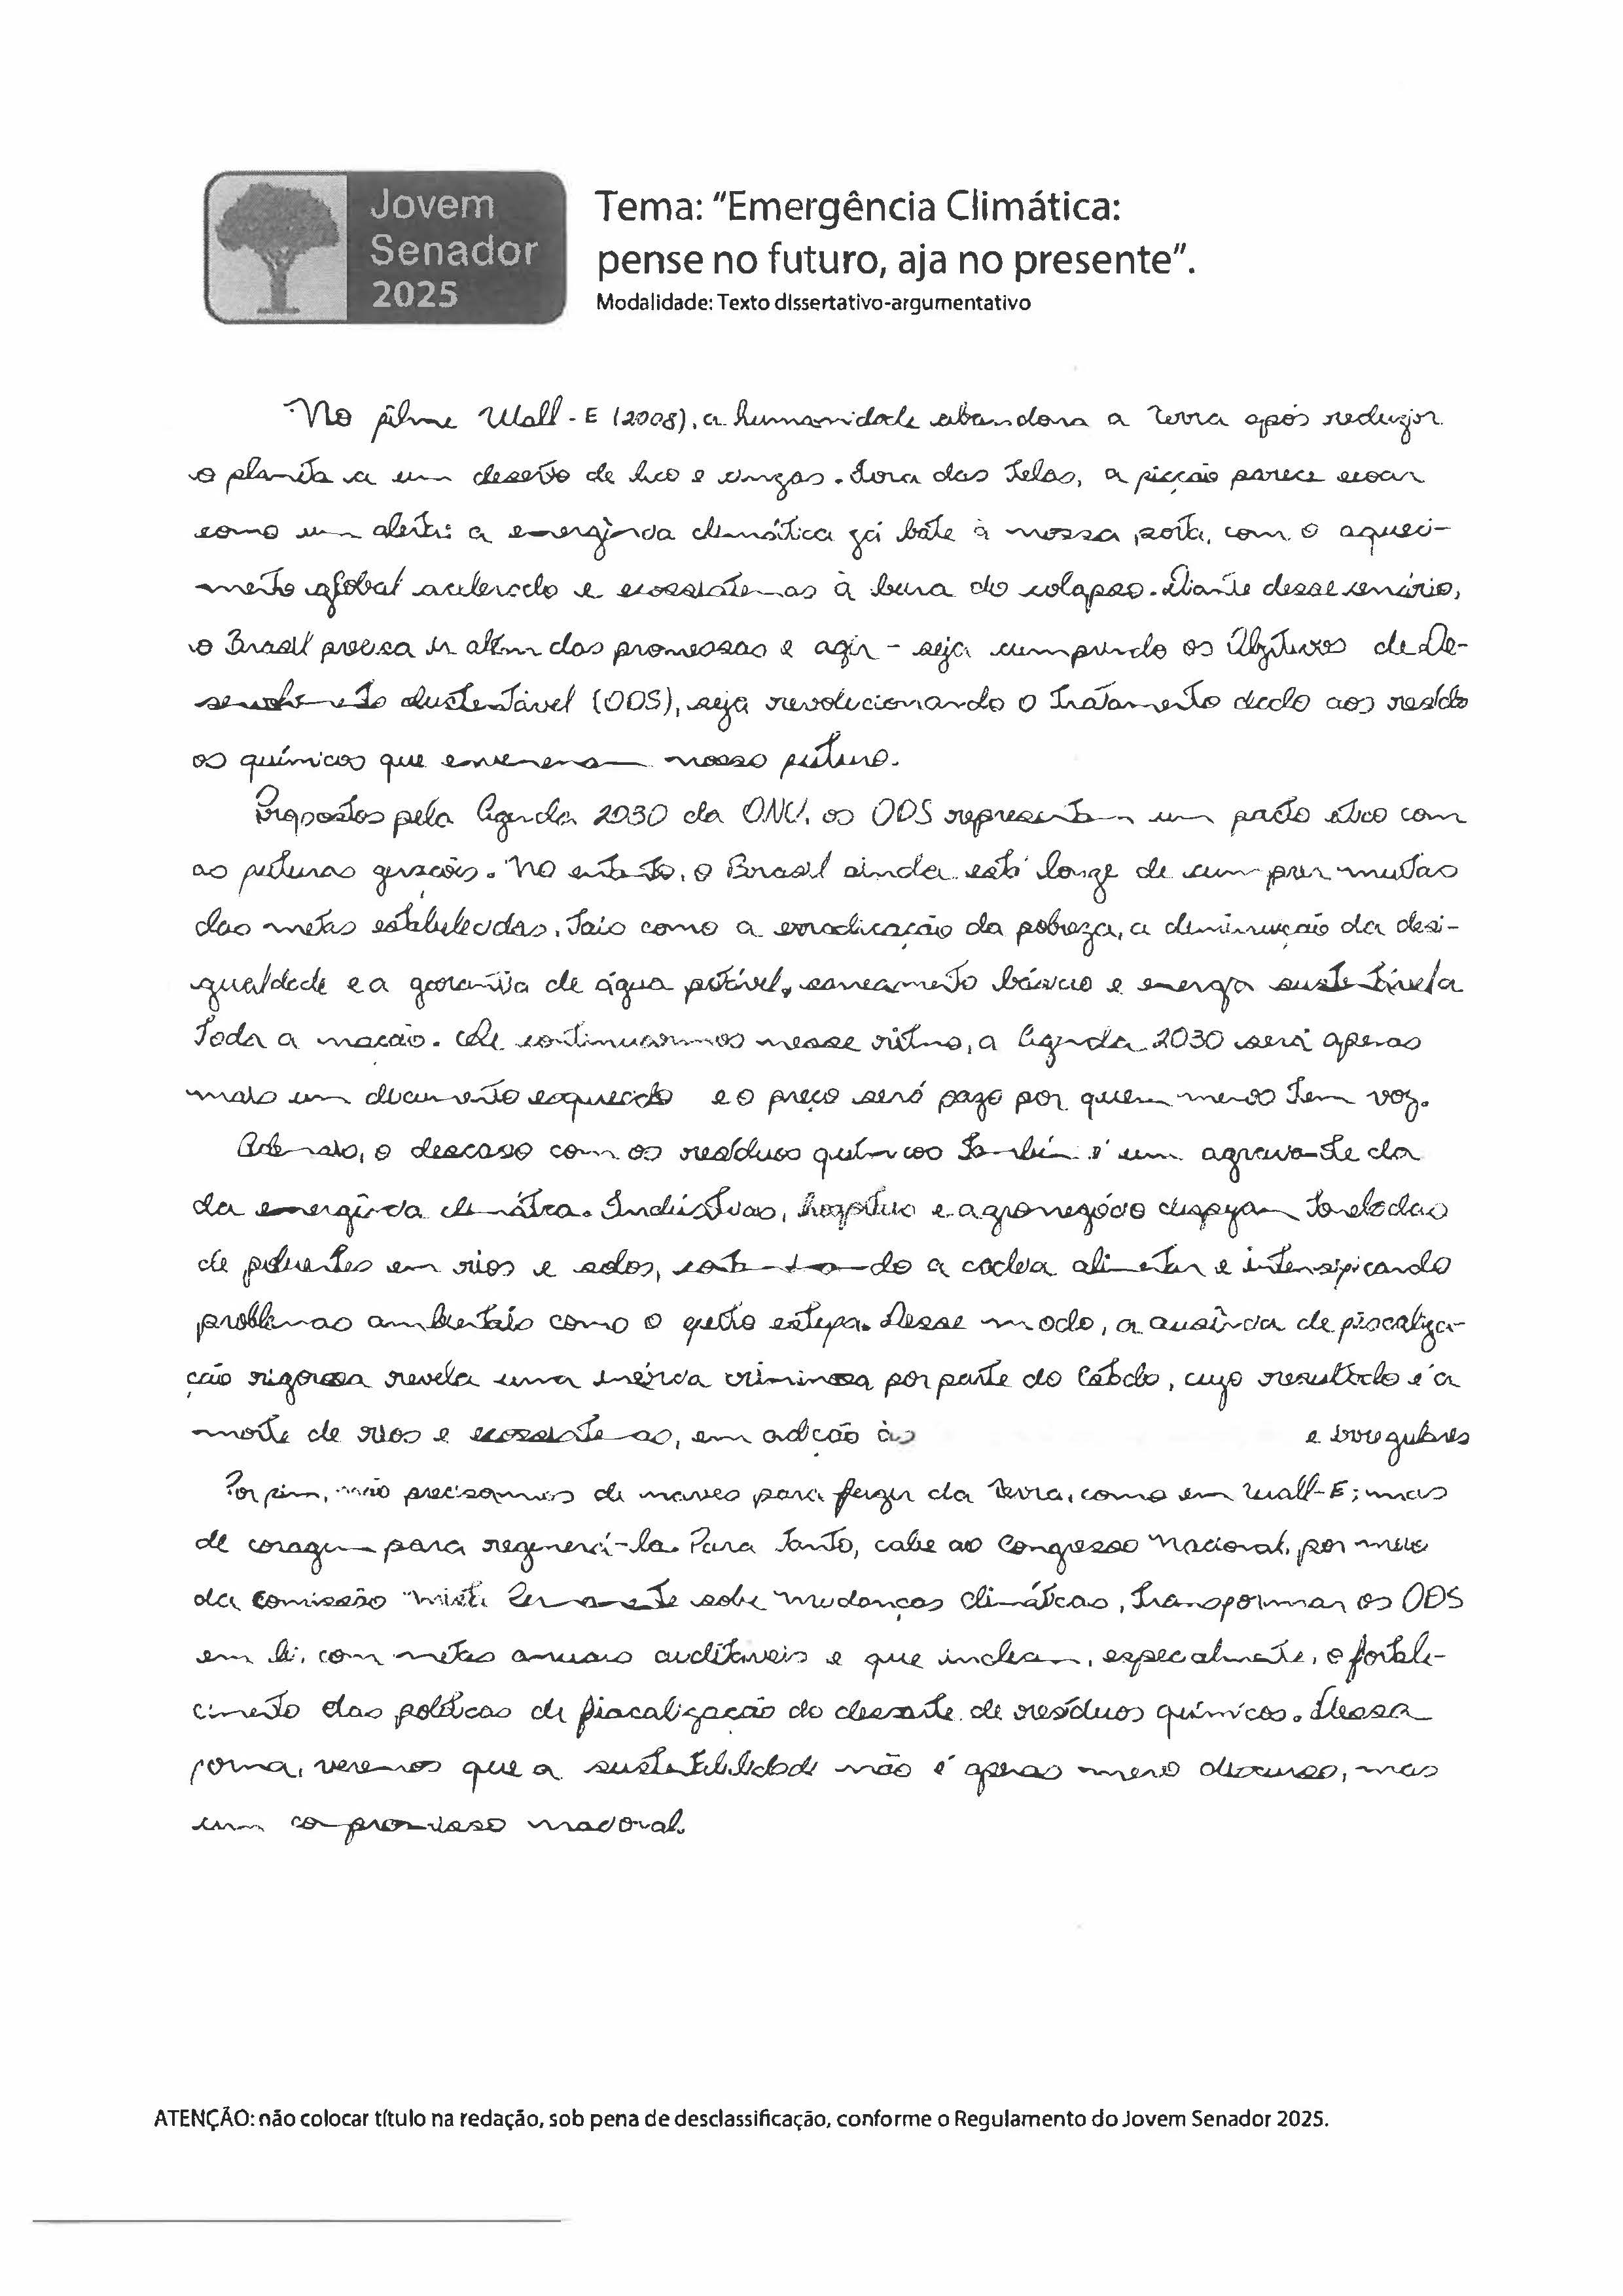 Jovem
Senador
2025
Tema: "Emergência Climática:
pense no futuro, aja no presente".
Modalidade: Texto dissertativo-argumentativo
No filme Wall-E (2008), a humanidade abandona a Terra após reduzir
o planeta a um deserto de lixo e cinzas. Fora das telas, a ficção parece ecoar
como um alerta: a emergência climática já bate à nossa porta, com o aqueci-
mento global acelerado e ecossistemas à beira do colapso. Diante desse cenário,
o Brasil precisa ir além das promessas e agir - seja cumprindo os Objetivos de De-
senvolvimento Sustentável (ODS), seja revolucionando o tratamento dado aos resídu
os químicos que envenenam nosso futuro.
Propostos pela Agenda 2030 da ONU, os ODS representam um pacto ético com
as futuras gerações. No entanto, o Brasil ainda está longe de cumprir muitas
das metas estabelecidas, tais como a erradicação da pobreza, a diminuição da desi-
gualdade e a garantia de água potável, saneamento básico e energia sustentável a
toda a nação. Se continuarmos nesse ritmo, a Agenda 2030 será apenas
mais um documento esquecido e o preço será pago por quem menos tem voz.
Ademais, o descaso com os resíduos químicos também é um agravante da
da emergência climática. Indústrias, hospitais e agronegócio despejam toneladas
de poluentes em rios e solos, contaminando a cadeia alimentar e intensificando
problemas ambientais como o efeito estufa. Desse modo, a ausência de fiscaliza-
ção rigorosa revela uma inércia criminosa por parte do Estado, cujo resultado é a
morte de rios e ecossistemas, em adição às e irregulares
Por fim, não precisamos de naves para fugir da Terra, como em Wall-E; mas
de coragem para regenerá-la. Para tanto, cabe ao Congresso Nacional, por meio
da Comissão Mista Permanente sobre Mudanças Climáticas, transformar os ODS
em lei, com metas anuais auditáveis e que incluam, especialmente, o fortale-
cimento das políticas de fiscalização do descarte de resíduos químicos. Dessa
forma, veremos que a sustentabilidade não é apenas mero discurso, mas
um compromisso nacional.
ATENÇÃO: não colocar título na redação, sob pena de desclassificação, conforme o Regulamento do Jovem Senador 2025.